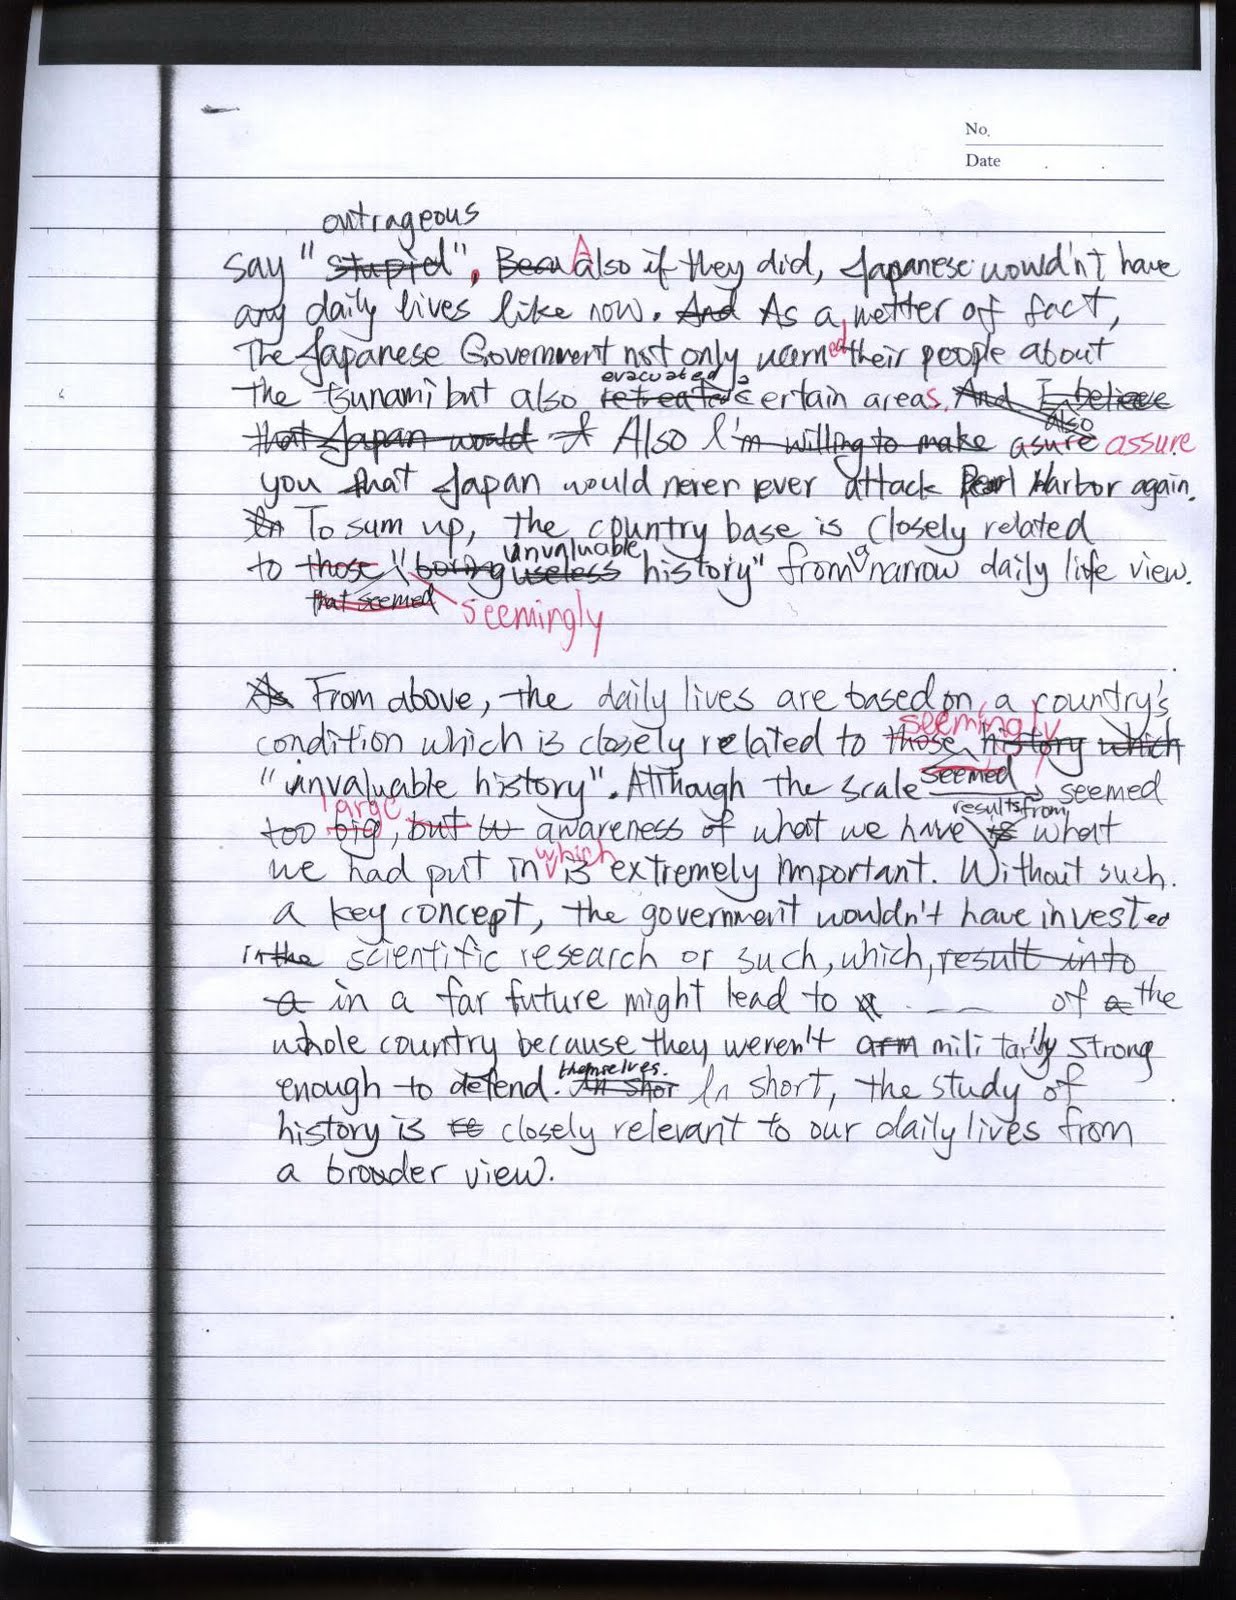 No.
Date
outrageous
say "stupid". Becu Also if they did, Japanese wouldn't have
any daily lives like now. And As a metter of fact,
The Japanese Government not only warned their people about
evacuated
the tsunami but also retreated certain areas. And I believe
also
that Japan would Also I'm willing to make asure assure
you that Japan would never ever attack Pearl Harbor again.
In To sum up, the country base is closely related
unvaluable a
to those "boring useless history" from narrow daily life view.
that seemed seemingly
As From above, the daily lives are based on a country's
seemingly
condition which is closely related to those history which
seemed
"unvaluable history". Although the scale seemed
large results from
too big, but awareness of what we have is what
which
we had put in is extremely important. Without such
a key concept, the government wouldn't have invested
in the scientific research or such, which, result into
a in a far future might lead to of a the
whole country because they weren't arm militarily strong
themselves.
enough to defend. In shor In short, the study of
history is re closely relevant to our daily lives from
a broader view.